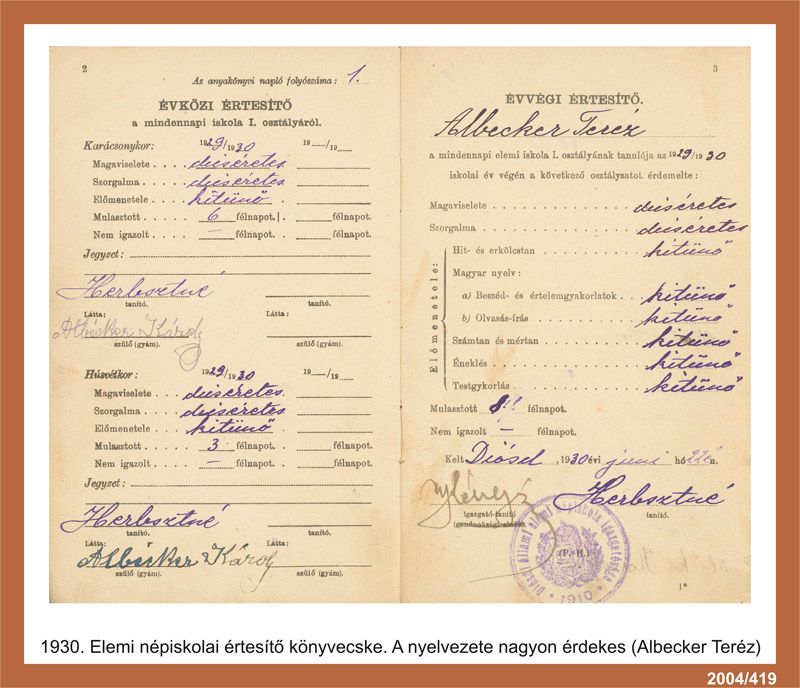 2
Az anyakönyvi napló folyószáma: 1.
ÉVKÖZI ÉRTESÍTŐ
a mindennapi iskola I. osztályáról.
Karácsonykor: 1929/1930 19....../19......
Magaviselete . . . . dicséretes
Szorgalma . . . . dicséretes
Előmenetele . . . . kitünő
Mulasztott . . . . 6 félnapot. félnapot.
Nem igazolt . . . – félnapot. félnapot.
Jegyzet:
Herbsztné
tanító. tanító.
Látta: Látta:
Albecker Károly
szülő (gyám). szülő (gyám).
Húsvétkor: 1929/1930 19....../19......
Magaviselete . . . . dicséretes
Szorgalma . . . . dicséretes
Előmenetele . . . . kitünő
Mulasztott . . . . 3 félnapot. félnapot.
Nem igazolt . . . – félnapot. félnapot.
Jegyzet:
Herbsztné
tanító. tanító.
Látta: Látta:
Albecker Károly
szülő (gyám). szülő (gyám).
3
ÉVVÉGI ÉRTESÍTŐ.
Albecker Teréz
a mindennapi elemi iskola I. osztályának tanulója az 1929/1930
iskolai év végén a következő osztályzatot érdemelte:
Magaviselete dicséretes
Szorgalma dicséretes
Előmenetele:
Hit- és erkölcstan kitünő
Magyar nyelv:
a) Beszéd- és értelemgyakorlatok . . . kitünő
b) Olvasás-írás kitünő
Számtan és mértan kitünő
Éneklés kitünő
Testgyakorlás kitünő
Mulasztott félnapot.
Nem igazolt – félnapot.
Kelt Diósd, 1930 évi juni hó 22én.
Herbsztné
igazgató-tanító tanító.
(gondnoksági elnök).
(P. H.)
1910
1*
1930. Elemi népiskolai értesítő könyvecske. A nyelvezete nagyon érdekes (Albecker Teréz)
2004/419